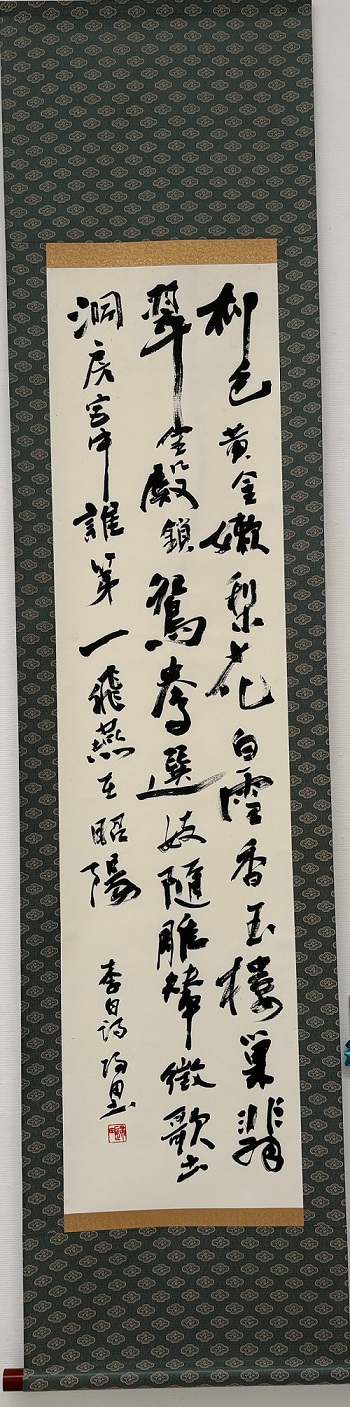 柳色黄金嫩梨花白雪香玉樓巢翡
翠金殿鎖鴛鴦選妓隨雕輦徵歌出
洞房宮中誰第一飛燕在昭陽
李白詩